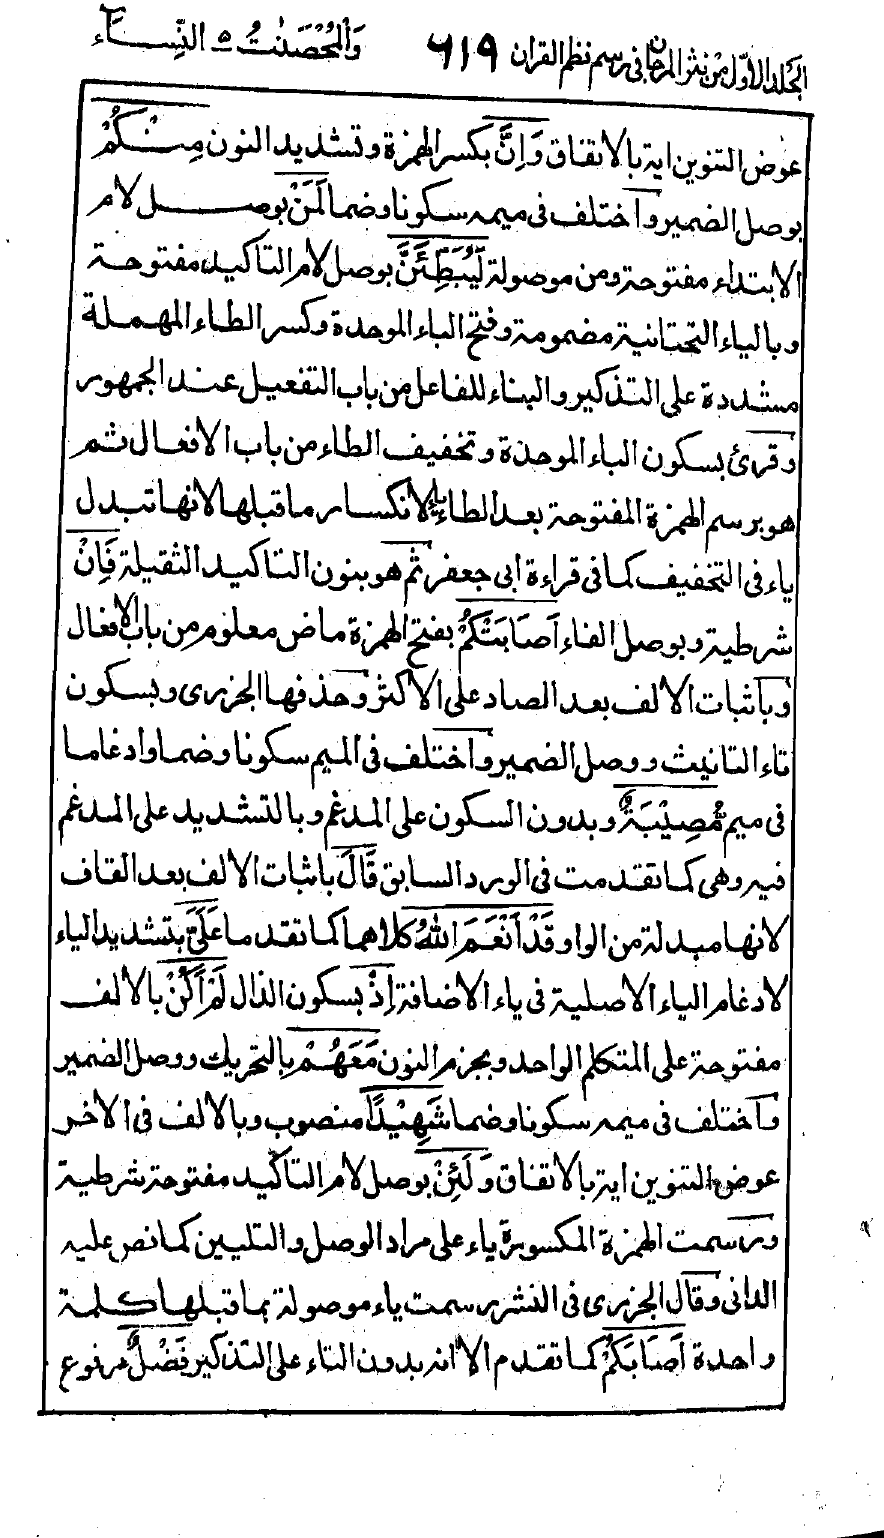 الجلد الاول من نثر المرجان فى رسم نظم القران ٦١٩ وَالْمُحْصَنٰتُ ٥ النِّسَاء
عوض التنوين اية بالاتفاق وَاِنَّ بكسر الهمزة وتشديد النون مِنْكُمْ
بوصل الضمير واختلف فى ميمه سكونا وضما لَمَنْ بوصل لام
الابتداء مفتوحة ومن موصولة لَّيُبَطِّئَنَّ بوصل لام التاكيد مفتوحة
وبالياء التحتانية مضمومة وفتح الباء الموحدة وكسر الطاء المهملة
مشددة على التذكير والبناء للفاعل من باب التفعيل عند الجمهور
وقرئ بسكون الباء الموحدة وتخفيف الطاء من باب الافعال ثم
هو برسم الهمزة المفتوحة بعد الطاء ياء لانكسار ما قبلها لانها تبدل
ياء فى التخفيف كما فى قراءة ابى جعفر ثم هو بنون التاكيد الثقيلة فَاِنْ
شرطية وبوصل الفاء اَصَابَتْكُمْ بفتح الهمزة ماض معلوم من باب الافعال
وباثبات الالف بعد الصاد على الاكثر وحذفها الجزرى وبسكون
تاء التانيث ووصل الضمير واختلف فى الميم سكونا وضما وادغاما
فى ميم مُّصِيْبَةٌ وبدون السكون على المدغم وبالتشديد على المدغم
فيه وهى كما تقدمت فى الورد السابق قَالَ باثبات الالف بعد القاف
لانها مبدلة من الواو قَدْ اَنْعَمَ اللّٰهُ كلاهما كما تقدما عَلَيَّ بتشديد الياء
لادغام الياء الاصلية فى ياء الاضافة اِذْ بسكون الذال لَمْ اَكُنْ بالالف
مفتوحة على المتكلم الواحد وبجزم النون مَعَهُمْ بالتحريك ووصل الضمير
واختلف فى ميمه سكونا وضما شَهِيْدًا منصوب وبالالف فى الاخر
عوض التنوين اية بالاتفاق وَلَئِنْ بوصل لام التاكيد مفتوحة شرطية
ورسمت الهمزة المكسورة ياء على مراد الوصل والتليين كما نص عليه
الدانى وقال الجزرى فى النشر رسمت ياء موصولة بما قبلها كلمة
واحدة اَصَابَكُمْ كما تقدم الا انه بدون التاء على التذكير فَضْلٌ مرفوع